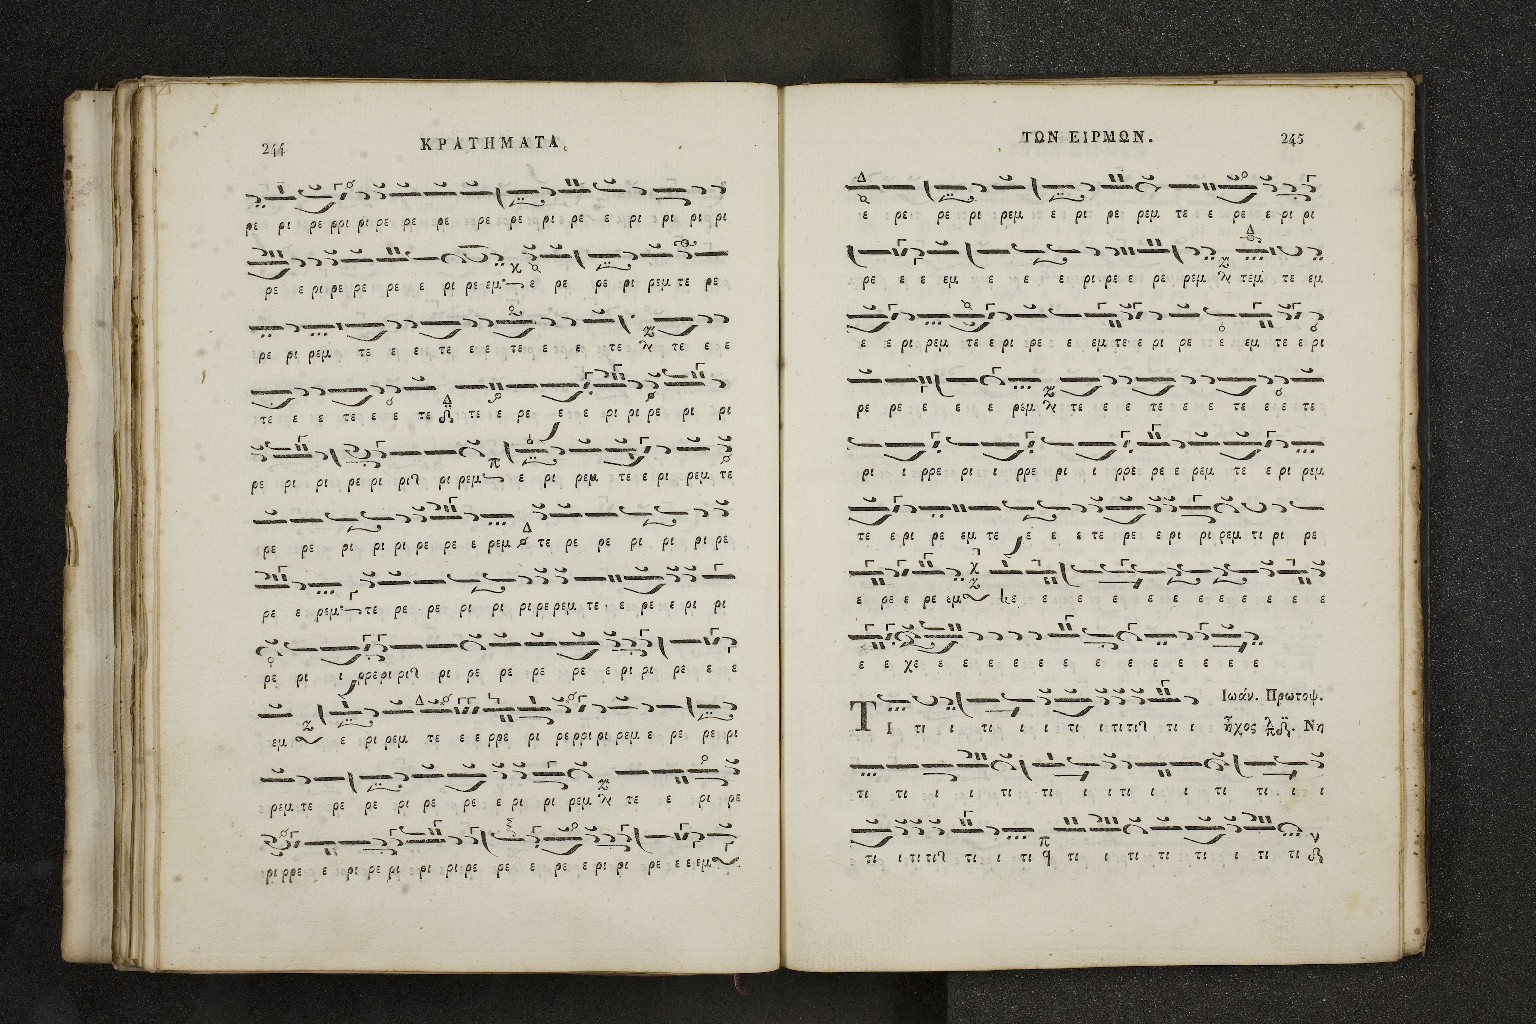 244 ΚΡΑΤΗΜΑΤΑ
ρε ρι ρε ρρι ρι ρε ρε ρε ρε ρε ρι ρε ε ρι ρι ρι ρι
ρε ε ρι ρε ρε ρε ε ρι ρε εμ ε ρε ρε ρι ρεμ τε ρε
ρε ρι ρεμ τε ε ε τε ε ε τε ε ε τε τε ε ε
τε ε ε τε ε ε τε τε ε ρε ε ε ρι ρι ρε ρι ρι
ρε ρι ρι ρε ρι ρι ρι ρεμ ε ρι ρεμ τε ε ρι ρεμ τε
ρε ρε ρι ρι ρι ρε ρε ε ρεμ τε ρε ρε ρι ρι ρι ρε
ρε ε ρεμ τε ρε ρε ρι ρι ρι ρε ρεμ τε ε ρε ε ρι ρι
ρε ρι ι ρρε ρι ρι ρι ρε ρε ρε ρε ε ρι ρι ρε ε ε
εμ ε ρι ρεμ τε ε ε ρρε ρι ρε ρρι ρι ρεμ ε ρε ρε ρι
ρεμ τε ρε ρε ρι ρε ρε ε ρι ρι ρεμ τε ε ρι ρε
ρι ρρε ε ρι ρε ρι ρι ρι ρε ρε ε ρε ε ρι ρι ρε ε ε εμ
ΤΩΝ ΕΙΡΜΩΝ. 245
ε ρε ρε ρι ρεμ ε ρι ρε ρεμ τε ε ρε ε ρι ρι
ρε ε ε εμ ε ε ε ρι ρε ε ρε ρεμ τεμ τε εμ
ε ε ρι ρεμ τε ε ρι ρε ε εμ τε ε ρι ρε ε εμ τε ε ρι
ρε ρε ε ε ε ρεμ τε ε ε τε ε ε τε ε ε τε
ρι ι ρρε ρι ι ρρε ρι ι ρρε ρε ε ρεμ τε ε ρι ρεμ
τε ε ρι ρε εμ τε ε ε ε τε ρε ε ρι ρι ρεμ τι ρι ρε
ε ρε ε ρε εμ ε ε ε ε ε ε ε ε ε ε
ε ε χε ε ε ε ε ε ε ε ε ε ε ε ε ε
Ιωάν. Πρωτοψ.
ΤΙ τι ι τι ι ι τι ι τι τι τι ι ἦχος Νη
τι τι ι ι τι τι ι ι τι ι ι τι τι ι ι
τι ι τι τι τι ι τι τι ι τι τι τι ι τι τι